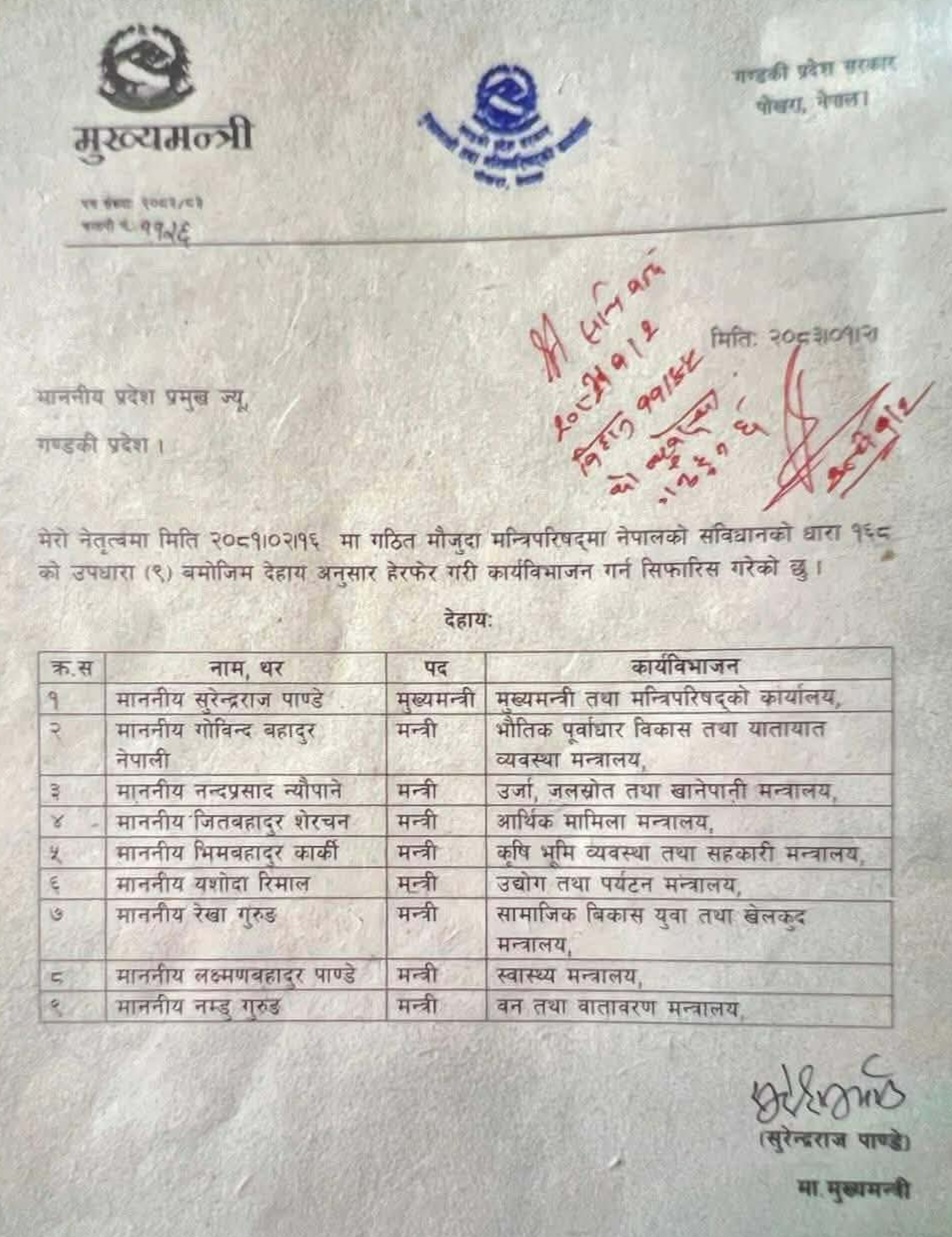 मुख्यमन्त्री
गण्डकी प्रदेश सरकार
पोखरा, नेपाल।
पत्र संख्या २०८२/८३
चलानी नं. ११२६
मिति: २०८३।०१।२
माननीय प्रदेश प्रमुख ज्यू,
गण्डकी प्रदेश ।
मेरो नेतृत्वमा मिति २०८१।०२।१६ मा गठित मौजुदा मन्त्रिपरिषद्मा नेपालको संविधानको धारा १६८
को उपधारा (९) बमोजिम देहाय अनुसार हेरफेर गरी कार्यविभाजन गर्न सिफारिस गरेको छु ।
देहाय:
क्र.स नाम, थर पद कार्यविभाजन
१ माननीय सुरेन्द्रराज पाण्डे मुख्यमन्त्री मुख्यमन्त्री तथा मन्त्रिपरिषद्को कार्यालय,
२ माननीय गोविन्द बहादुर मन्त्री भौतिक पूर्वाधार विकास तथा यातायात
नेपाली व्यवस्था मन्त्रालय,
३ माननीय नन्दप्रसाद न्यौपाने मन्त्री उर्जा, जलस्रोत तथा खानेपानी मन्त्रालय,
४ माननीय जितबहादुर शेरचन मन्त्री आर्थिक मामिला मन्त्रालय,
५ माननीय भिमबहादुर कार्की मन्त्री कृषि भूमि व्यवस्था तथा सहकारी मन्त्रालय,
६ माननीय यशोदा रिमाल मन्त्री उद्योग तथा पर्यटन मन्त्रालय,
७ माननीय रेखा गुरुङ मन्त्री सामाजिक बिकास युवा तथा खेलकुद
मन्त्रालय,
८ माननीय लक्ष्मणबहादुर पाण्डे मन्त्री स्वास्थ्य मन्त्रालय,
९ माननीय नम्डु गुरुङ मन्त्री वन तथा वातावरण मन्त्रालय,
(सुरेन्द्रराज पाण्डे)
मा.मुख्यमन्त्री